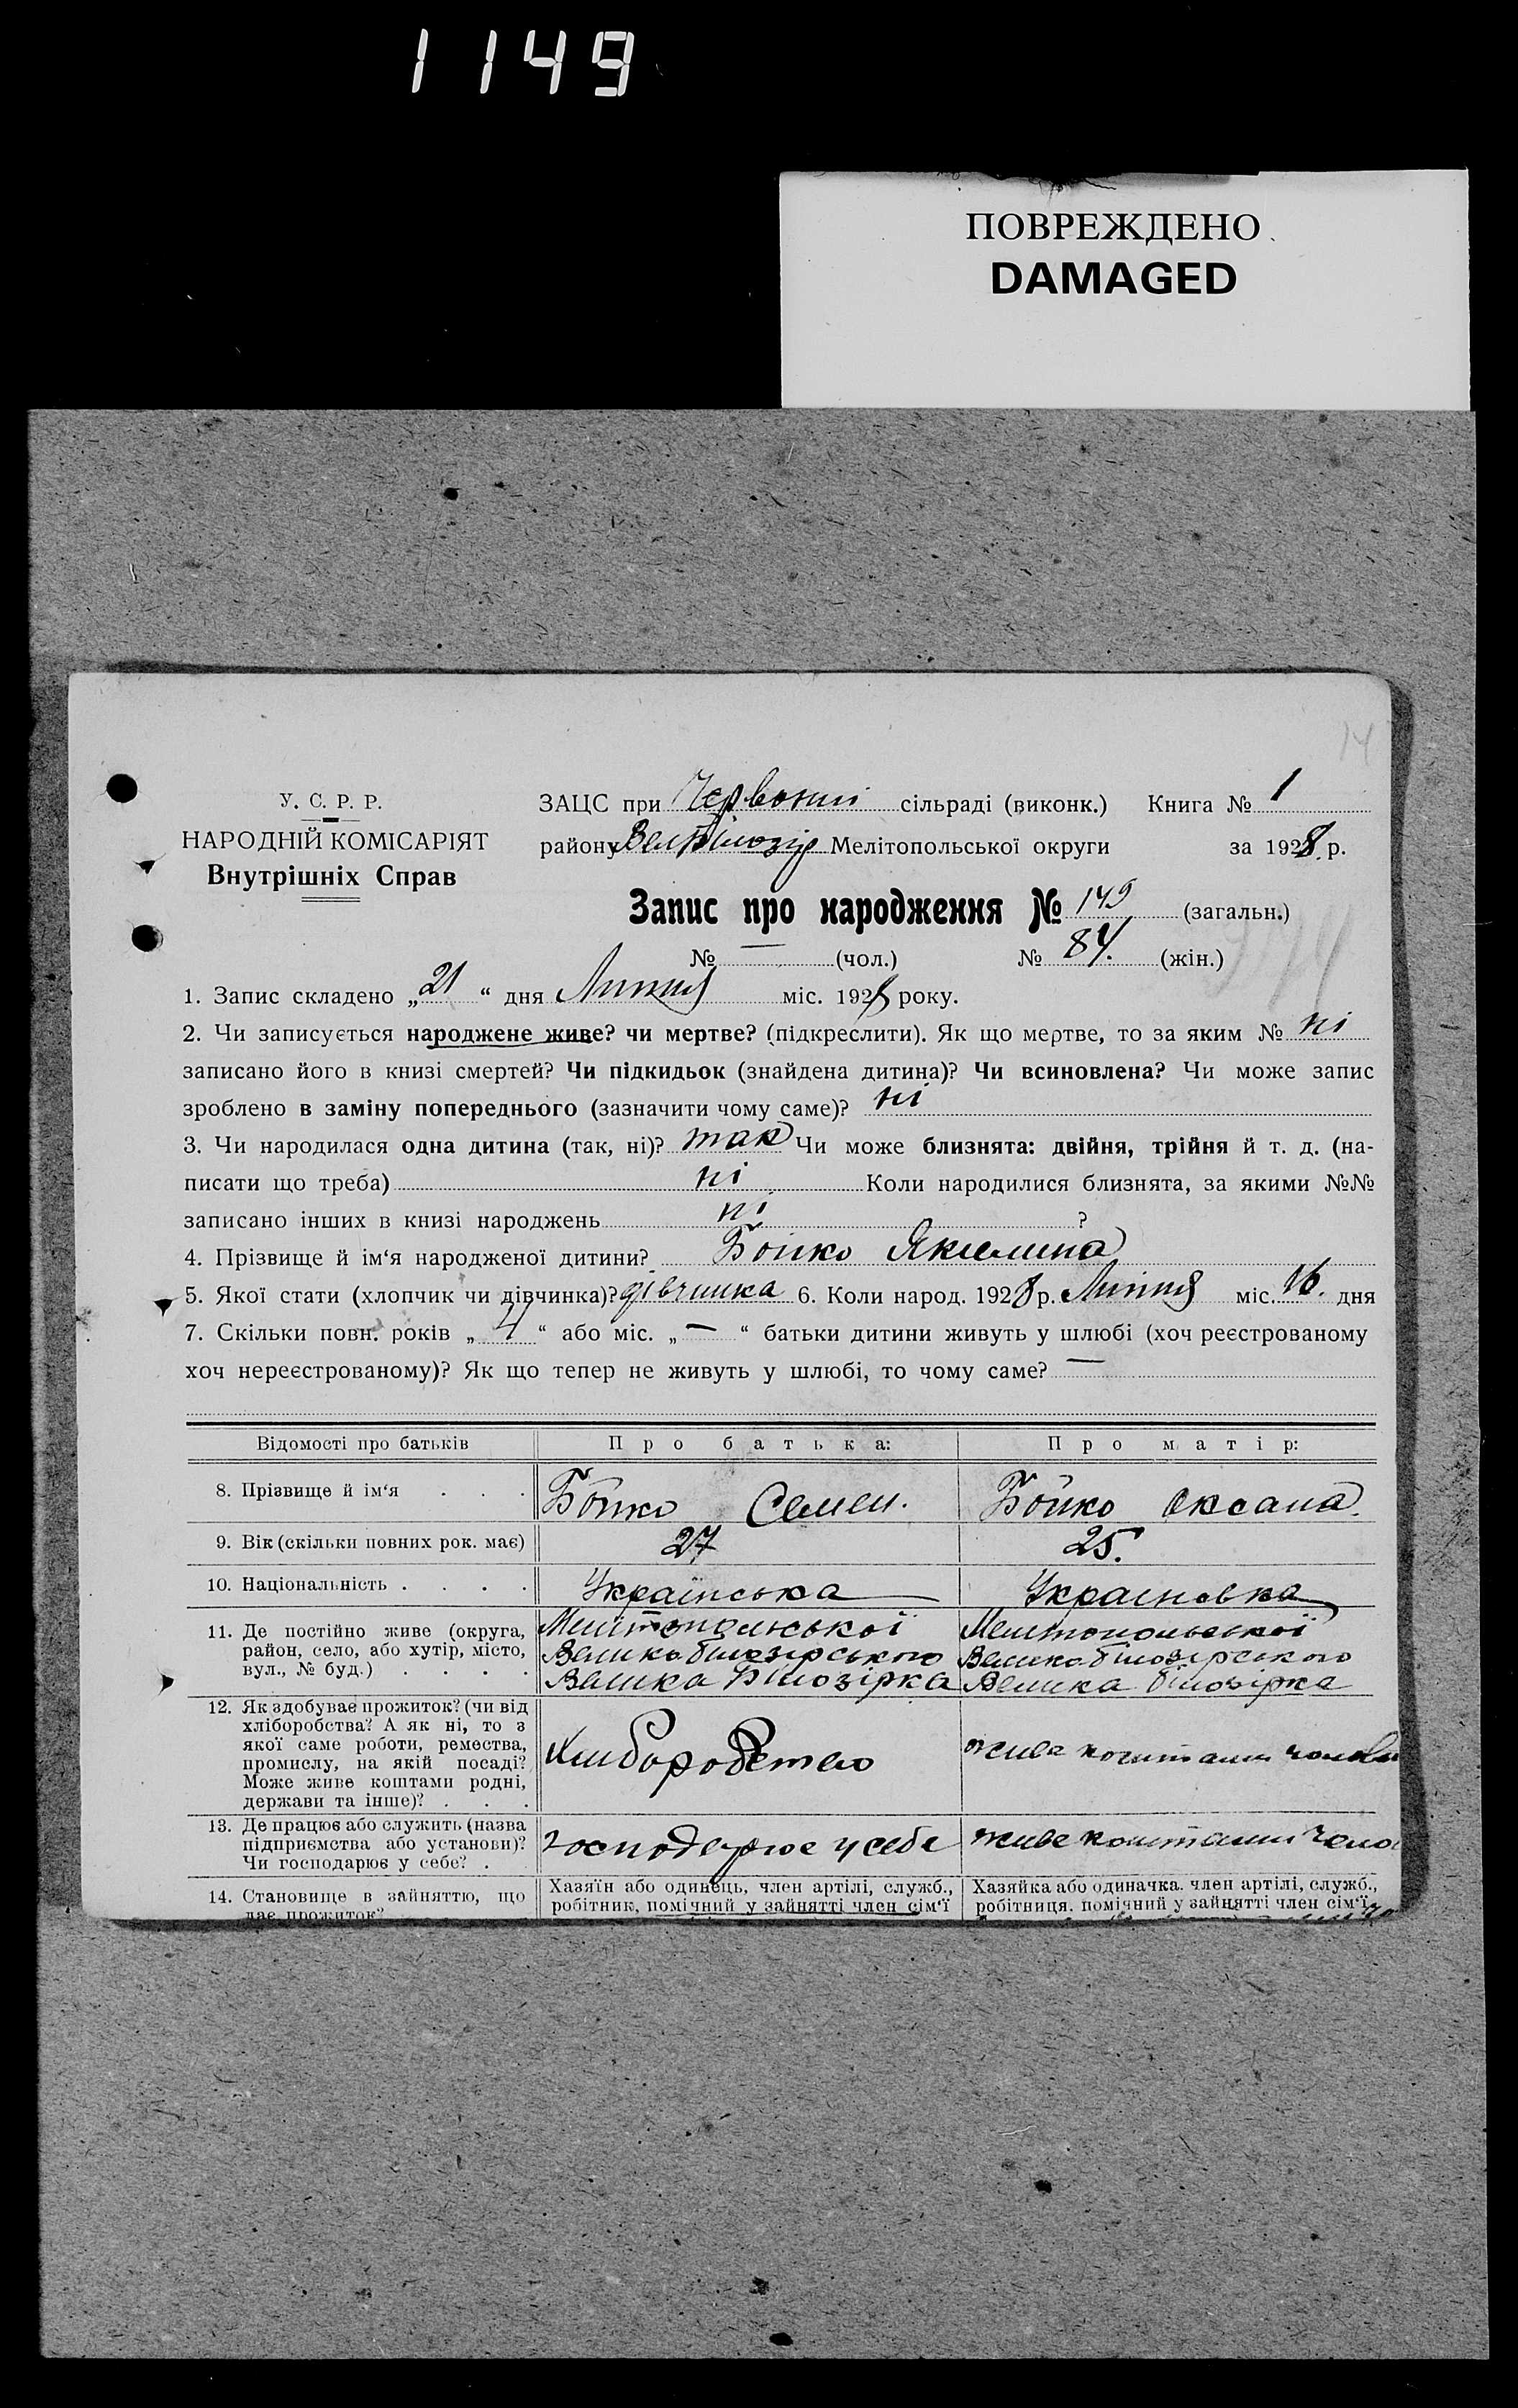 1149
ПОВРЕЖДЕНО
DAMAGED
14
У. С. Р. Р.
НАРОДНІЙ КОМІСАРІЯТ
Внутрішніх Справ
ЗАЦС при Червоній сільраді (виконк.) Книга № 1
району Вел Білозір Мелітопольської округи за 1928 р.
Запис про народження № 149 (загальн.)
№ — (чол.) № 84. (жін.)
1. Запис складено „21“ дня Липня міс. 1928 року.
2. Чи записується народжене живе? чи мертве? (підкреслити). Як що мертве, то за яким № ні
записано його в книзі смертей? Чи підкидьок (знайдена дитина)? Чи всиновлена? Чи може запис
зроблено в заміну попереднього (зазначити чому саме)? ні
3. Чи народилася одна дитина (так, ні)? так Чи може близнята: двійня, трійня й т. д. (на-
писати що треба) ні Коли народилися близнята, за якими №№
записано інших в книзі народжень ні ?
4. Прізвище й ім‘я народженої дитини? Бойко Якилина
5. Якої стати (хлопчик чи дівчинка)? дівчинка 6. Коли народ. 1928 р. Липня міс. 16. дня
7. Скільки повн. років „4“ або міс. „—“ батьки дитини живуть у шлюбі (хоч реєстрованому
хоч нереєстрованому)? Як що тепер не живуть у шлюбі, то чому саме? —
Відомості про батьків Про батька: Про матір:
8. Прізвище й ім‘я . . . Бойко Семен. Бойко Оксана.
9. Вік (скільки повних рок. має) 27 25.
10. Національність . . . . Українська Українська
11. Де постійно живе (округа,
район, село, або хутір, місто,
вул., № буд.) . . . .
Мелітопольської
Великобілозірського
Велика Білозірка
Мелітопольської
Великобілозірського
Велика білозірка
12. Як здобуває прожиток? (чи від
хліборобства? А як ні, то з
якої саме роботи, ремества,
промислу, на якій посаді?
Може живе коштами родні,
держави та інше)? . . .
Хліборобство
живе коштами
13. Де працює або служить (назва
підприємства або установи)?
Чи господарює у себе? .
господарює у себе
живе коштами
14. Становище в зайняттю, що
дає прожиток?
Хазяїн або одинець, член артілі, служб.,
робітник, помічний у зайнятті член сім‘ї
Хазяйка або одиначка. член артілі, служб.,
робітниця. помічний у зайнятті член сім‘ї